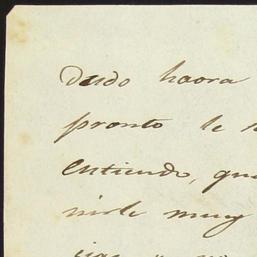 Dudo haora
pronto le
entiendo, qu
nirle muy